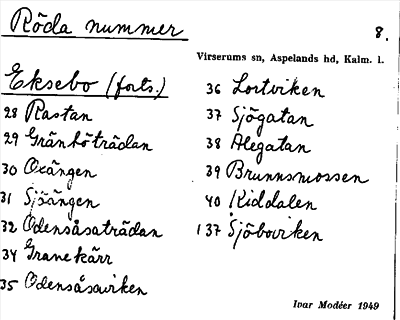 Röda nummer
8.
Virserums sn, Aspelands hd, Kalm. l.
Eksebo (forts.)
28 Rastan
29 Gränhöträdan
30 Oxängen
31 Sjöängen
32 Odensåsaträdan
34 Granekärr
35 Odensåsaviken
36 Lortviken
37 Sjögatan
38 Alegatan
39 Brunnsmossen
40 Kiddalen
137 Sjöboviken
Ivar Modéer 1949